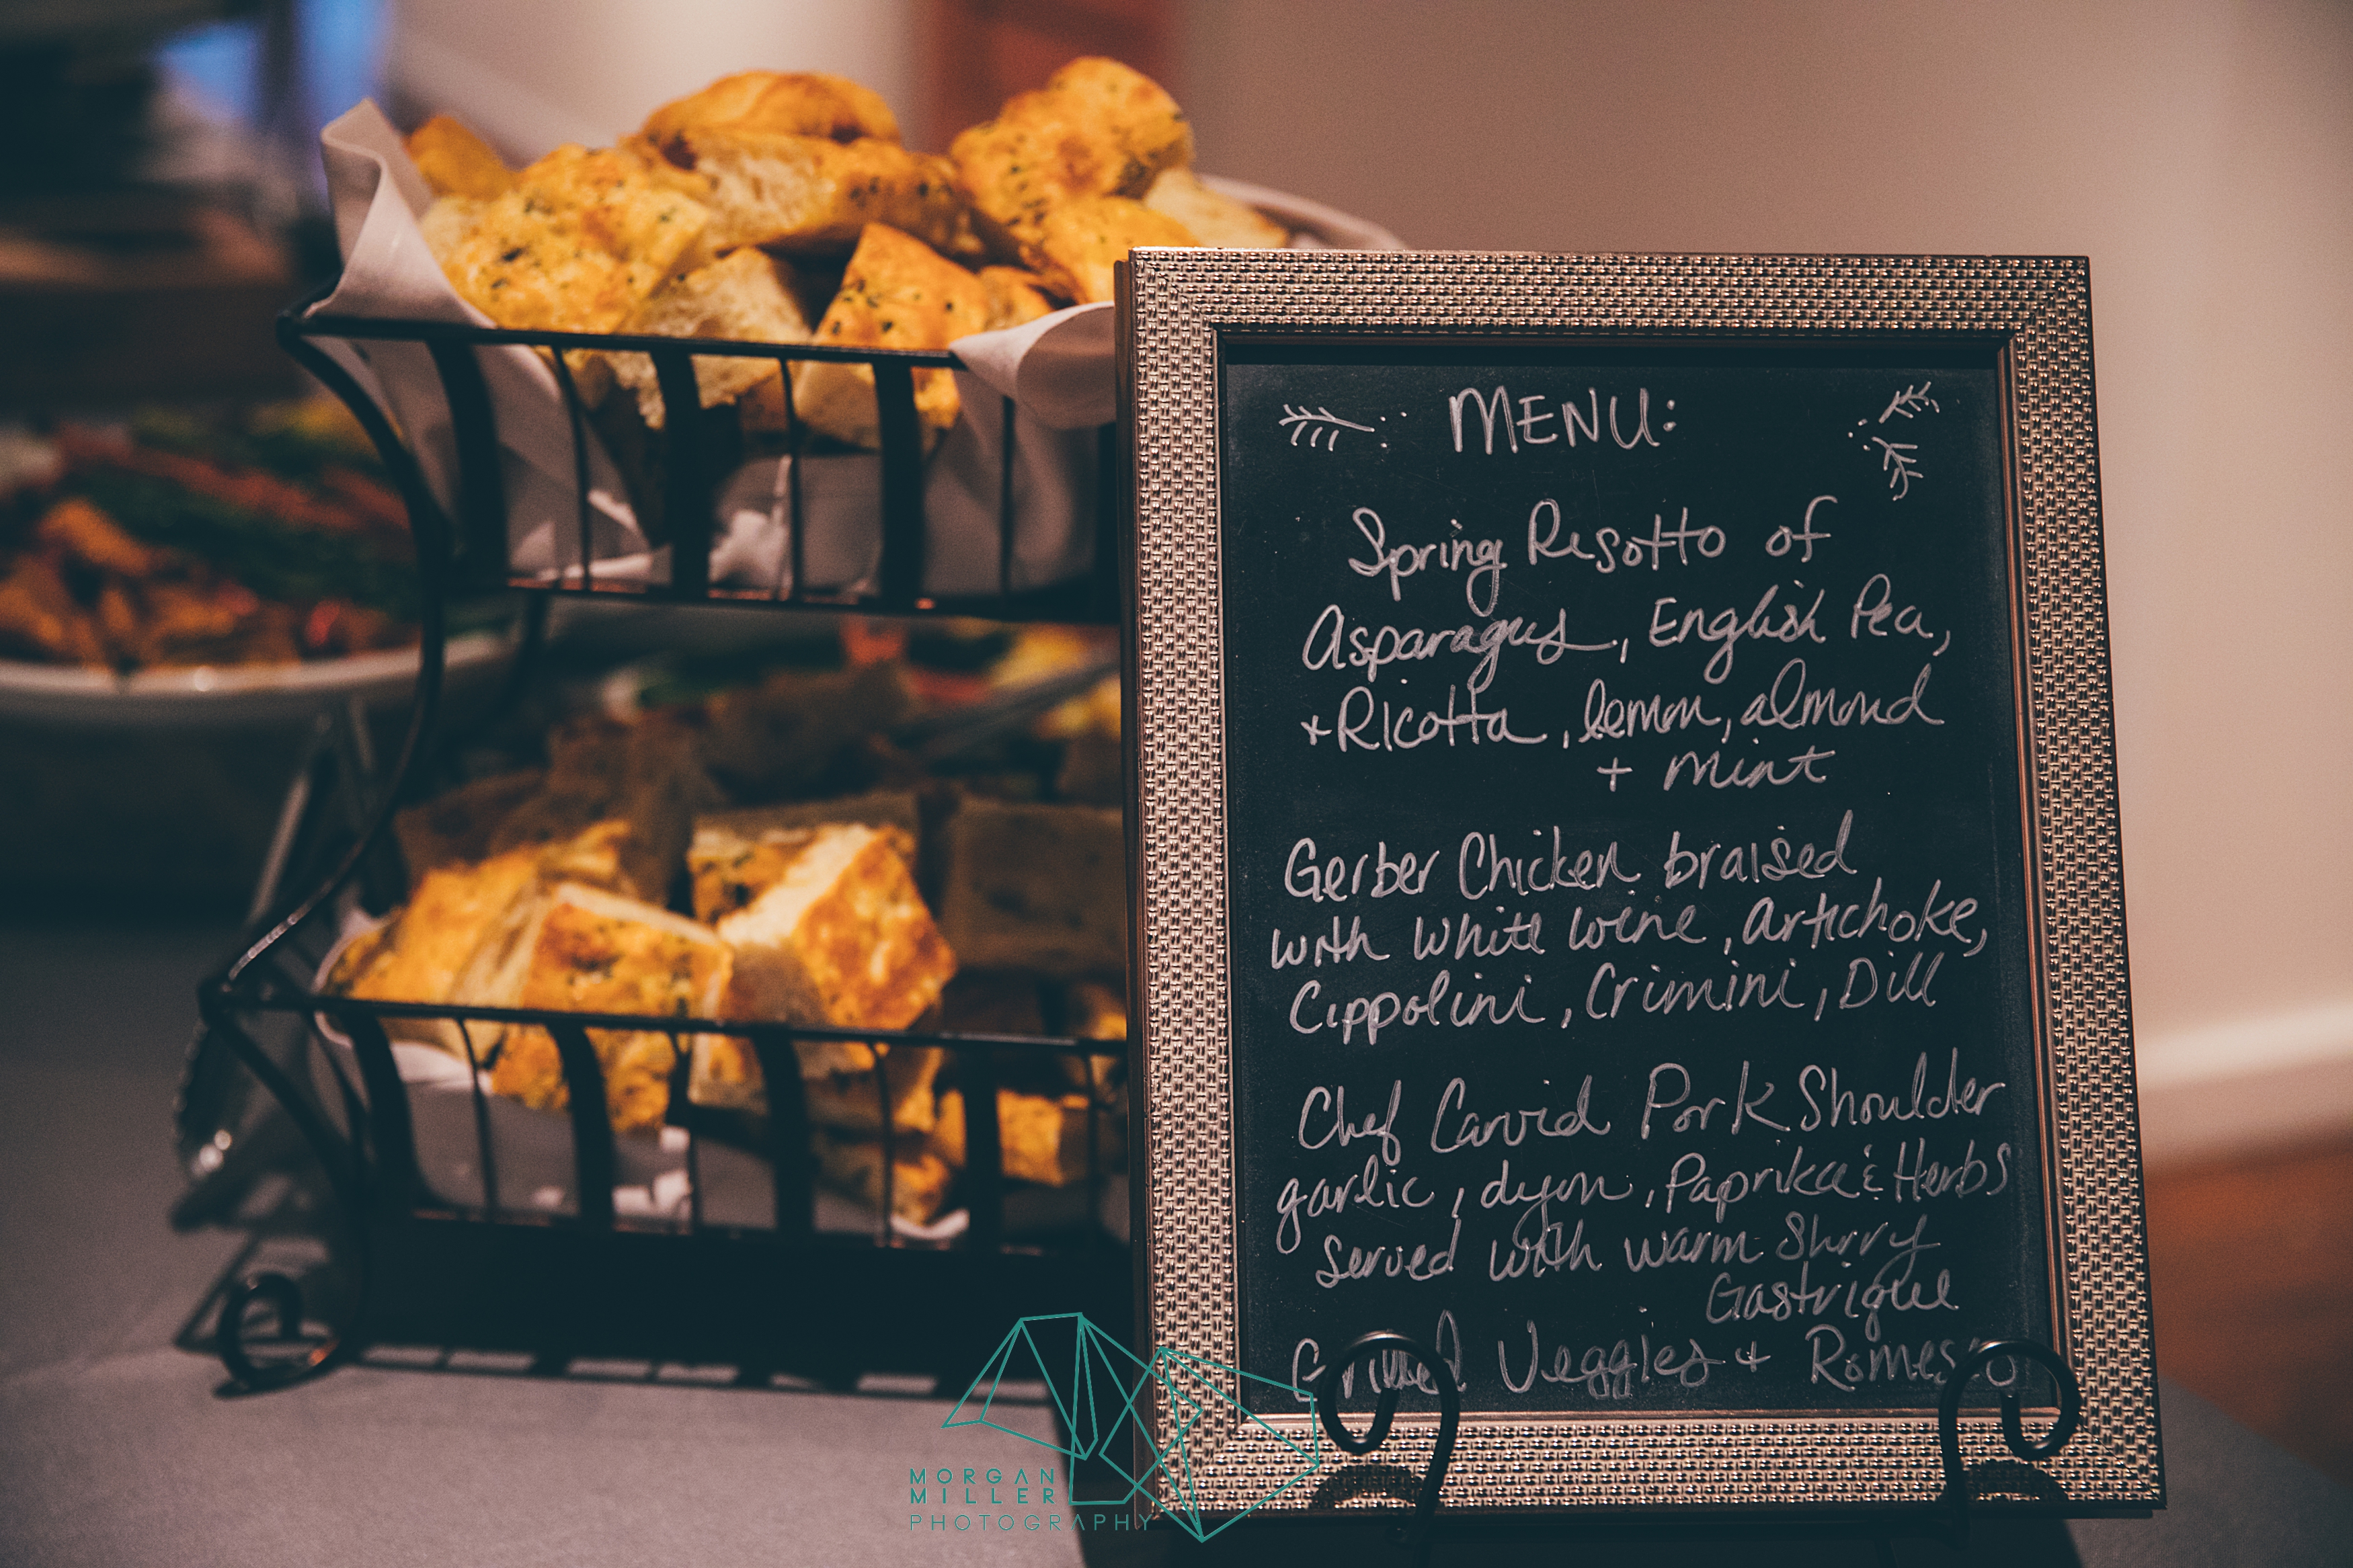 MENU:
Spring Risotto of
Asparagus, English Pea,
+ Ricotta, lemon, almond
+ Mint
Gerber Chicken braised
with white wine, artichoke,
Cippolini, Crimini, Dill
Chef Carvid Pork Shoulder
garlic, dijon, Paprika & Herbs
served with warm Shrry
Gastrique
Grilled Veggies + Romesco
MORGAN
MILLER
PHOTOGRAPHY